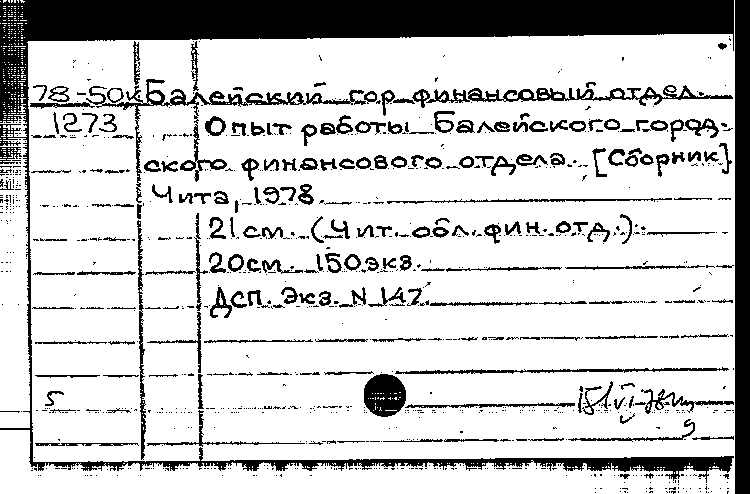 78-50к Балейский гор финансовый отдел.
1273 Опыт работы Балейского город-
ского финансового отдела. [Сборник]
Чита, 1978.
21см. (Чит. обл. фин. отд.).
20см. 150экз.
Дсп. Экз. N 147.
5
9